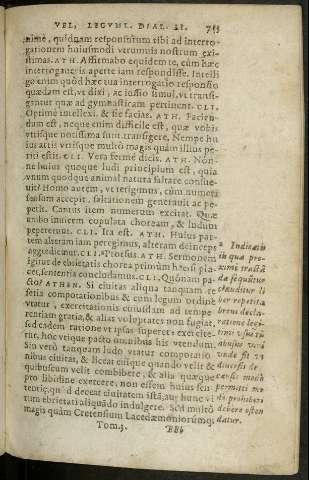 VEL, LEGVM. DIAL. II. 753
nime, quidnam responsurum tibi ad interro-
gationem huiusmodi verumuis nostrum exi-
stimas. ATH. Affirmabo equidem te, cùm hæc
interrogaueris aperte iam respondisse. Intelli
go enim quòd hæc tua interrogatio responsio
quædam est, vt dixi, ac iussio simul, vt transi-
gantur quæ ad gymnasticam pertinent. CLI.
Optimè intellexi, & sic facias. ATH. Facien-
dum est, neque enim difficile est, quæ vobis
vtrisque notissima sunt transigere. Nempe hu
ius artis vtrisque multò magis quàm illius pe-
riti estis. CLI. Vera fermè dicis. ATH. Non-
ne huius quoque ludi principium est, quia
vnum quodque animal natura saltare consue-
uit? Homo autem, vt tetigimus, cùm numeri
sensum accepit, saltationem generauit ac pe-
perit. Cantus item numerum excitat. Quæ
ambo inuicem copulata choream, & ludum
pepererunt. CLI. Ita est. ATH. Huius par-
tem alteram iam peregimus, alteram deinceps
aggrediemur. CLI. Prorsus. ATH. Sermonem
igitur de ebrietatis chorea primùm hæc si pla
cet, sententia concludamus. CLI. Quónam pa-
cto? ATHEN. Si ciuitas aliqua tanquam re
seria computationibus & cum legum ordine
vtatur, exercitationis cuiusdam ad tempe-
rantiam gratia, & alias voluptates non fugiat,
sed eadem ratione vt ipsas superet exercite-
tur, hoc vtique pacto omnibus his vtendum.
Sin verò tanquam ludo vtatur computatio-
nibus ciuitas, & liceat cuique quando velit &
quibuscum velit combibere, & alia quæque
pro libidine exercere, non essem huius sen-
tentiæ, quòd deceat ciuitatem istā, aut hunc vi
rum ebrietati aliquādo indulgere. Sed multò
magis quàm Cretensium Lacedæmoniorumq;
Tom. 3. BBb
Indicatis
in qua pro-
da sequitur
clauditur li
ber repetita
breui decla-
ratione legi-
timi vsus &
abusus vini
permitti mo
do prohiberi
debere osten
datur.